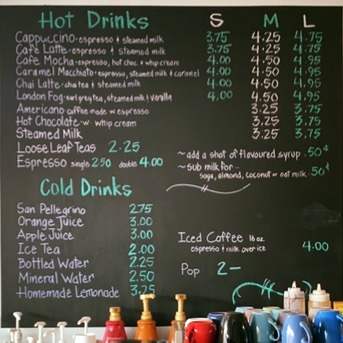 Hot Drinks S M L
Cappuccino - espresso & steamed milk 3.75 4.25 4.75
Cafe Latte - espresso & steamed milk 3.75 4.25 4.75
Cafe Mocha - espresso, hot choc. & whip cream 4.00 4.50 4.95
Caramel Macchiato - espresso, steamed milk & caramel 4.00 4.50 4.95
Chai Latte - chai tea & steamed milk 4.00 4.50 4.95
London Fog - earl grey tea, steamed milk & vanilla 4.00 4.50 4.95
Americano - coffee made w espresso 3.25 3.75
Hot Chocolate w. whip cream 3.25 3.75
Steamed Milk 3.25 3.75
Loose Leaf Teas 2.25
Espresso single 2.50 double 4.00
~ add a shot of flavoured syrup .50¢
~ sub milk for ~ .50¢
soya, almond, coconut or oat milk
Cold Drinks
San Pellegrino 2.75
Orange Juice 3.00
Apple Juice 3.00
Ice Tea 2.00
Bottled Water 2.25
Mineral Water 2.50
Homemade Lemonade 3.25
Iced Coffee 16 oz.
espresso & milk over ice 4.00
Pop 2-